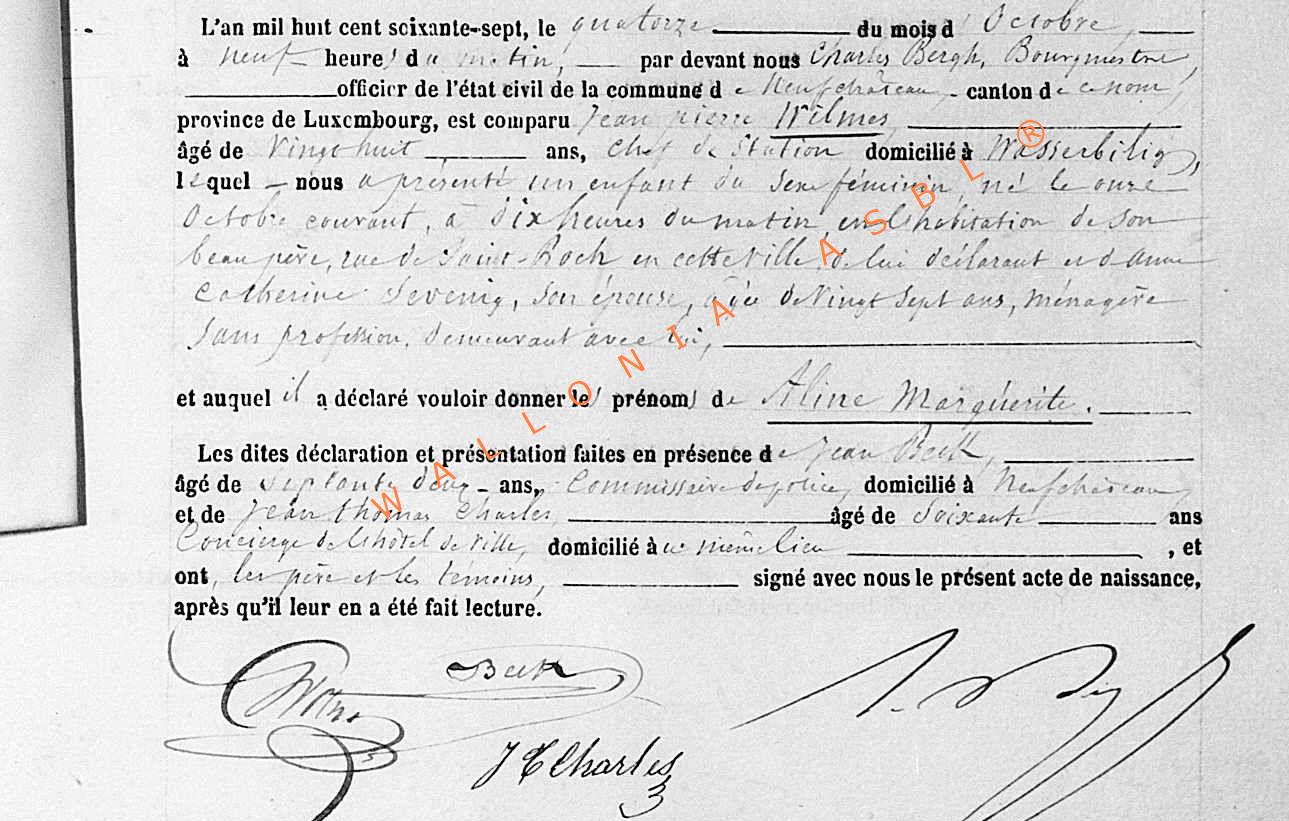 L'an mil huit cent soixante-sept, le quatorze du mois d'Octobre,
à neuf heures du matin, par devant nous Charles Bergh, Bourgmestre,
officier de l'état civil de la commune de Neufchâteau, canton de ce nom,
province de Luxembourg, est comparu Jean pierre Wilmes,
âgé de Vingt huit ans, Chef de Station domicilié à Wasserbilig,
lequel nous a présenté un enfant du sexe féminin, né le onze
Octobre courant, à dix heures du matin, en l'habitation de son
beau père, rue de Saint-Roch en cette ville, de lui déclarant et d'Anne
Catherine Sevenig, son épouse, âgée de Vingt sept ans, ménagère
sans profession, demeurant avec lui,
et auquel il a déclaré vouloir donner les prénoms de Aline Marguérite.
Les dites déclaration et présentation faites en présence de Jean Beck,
âgé de Septante deux ans, Commissaire de police, domicilié à Neufchâteau,
et de Jean thomas Charles, âgé de Soixante ans
Concierge de l'hôtel de Ville, domicilié à même lieu , et
ont, les père et les témoins, signé avec nous le présent acte de naissance,
après qu'il leur en a été fait lecture.
Beck
J T Charles
WALLONIA ASBL ®